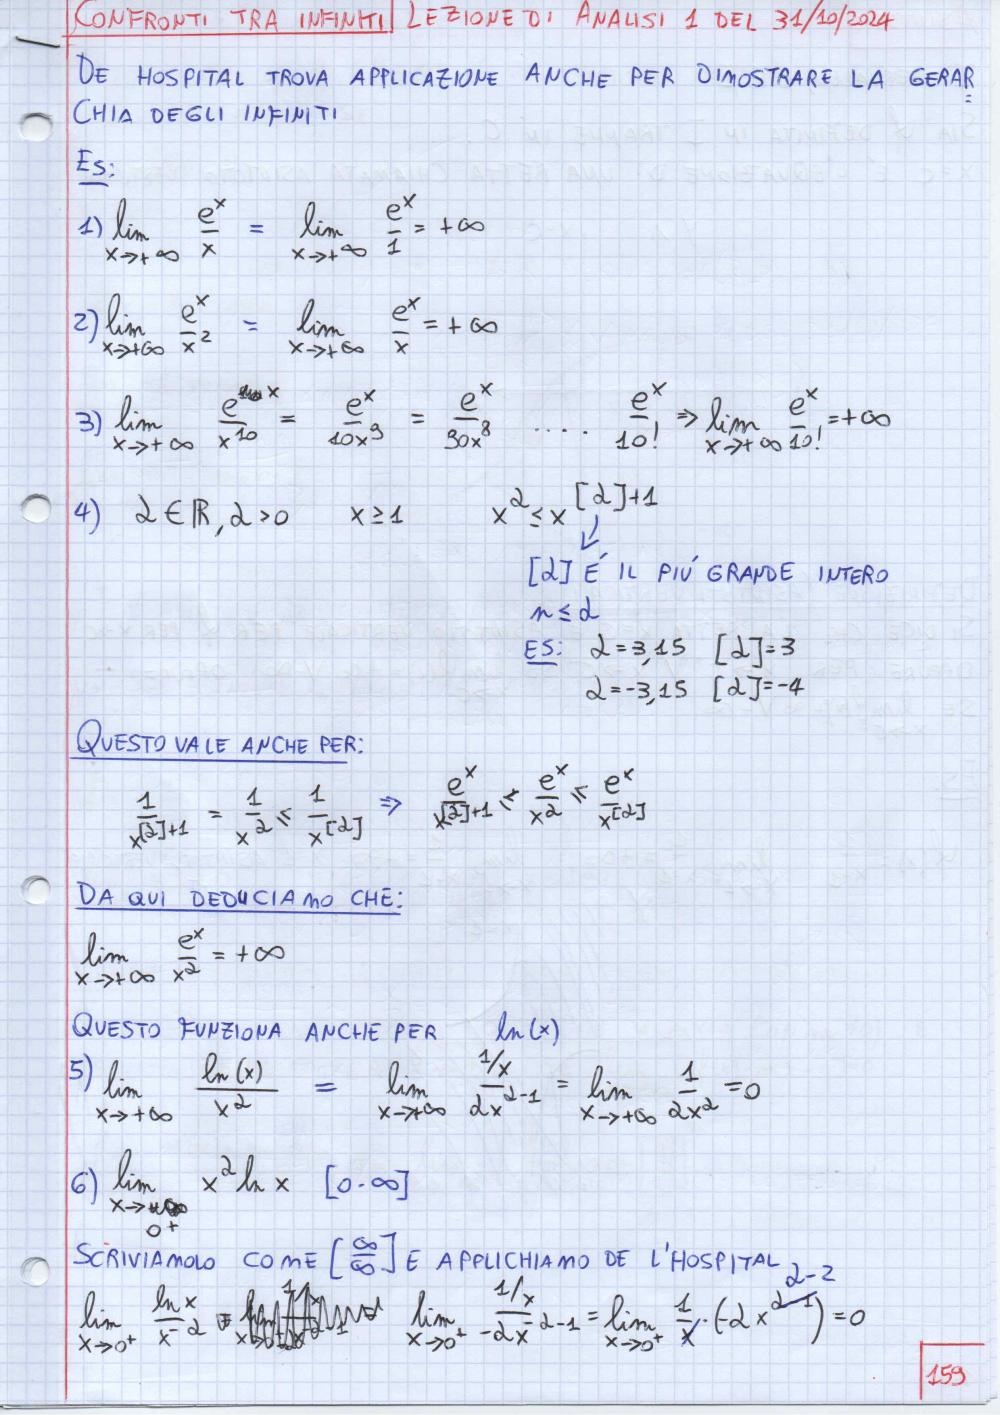 CONFRONTI TRA INFINITI | LEZIONE DI ANALISI 1 DEL 31/10/2024
DE HOSPITAL TROVA APPLICAZIONE ANCHE PER DIMOSTRARE LA GERAR
CHIA DEGLI INFINITI
ES:
1) lim x→+∞ e^x/x = lim x→+∞ e^x/1 = +∞
2) lim x→+∞ e^x/x^2 = lim x→+∞ e^x/x = +∞
3) lim x→+∞ e^x/x^10 = e^x/10x^9 = e^x/90x^8 .... e^x/10! ⇒ lim x→+∞ e^x/10! = +∞
4) α ∈ ℝ, α > 0 x ≥ 1 x^α ≤ x^([α]+1)
[α] É IL PIÚ GRANDE INTERO
n ≤ α
ES: α = 3,15 [α] = 3
α = -3,15 [α] = -4
QUESTO VALE ANCHE PER:
1/x^([α]+1) = 1/x^α ≤ 1/x^[α] ⇒ e^x/x^([α]+1) ≤ e^x/x^α ≤ e^x/x^[α]
DA QUI DEDUCIAMO CHE:
lim x→+∞ e^x/x^α = +∞
QUESTO FUNZIONA ANCHE PER ln(x)
5) lim x→+∞ ln(x)/x^α = lim x→+∞ (1/x)/(αx^(α-1)) = lim x→+∞ 1/(αx^α) = 0
6) lim x→0+ x^α ln x [0·∞]
SCRIVIAMOLO COME [∞/∞] E APPLICHIAMO DE L'HOSPITAL
lim x→0+ ln x/x^-α = lim x→0+ (1/x)/(-αx^(-α-1)) = lim x→0+ 1/x · (-αx^(α-1)) = 0
159